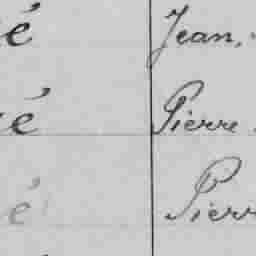 é Jean,
é Pierre
é Pierr